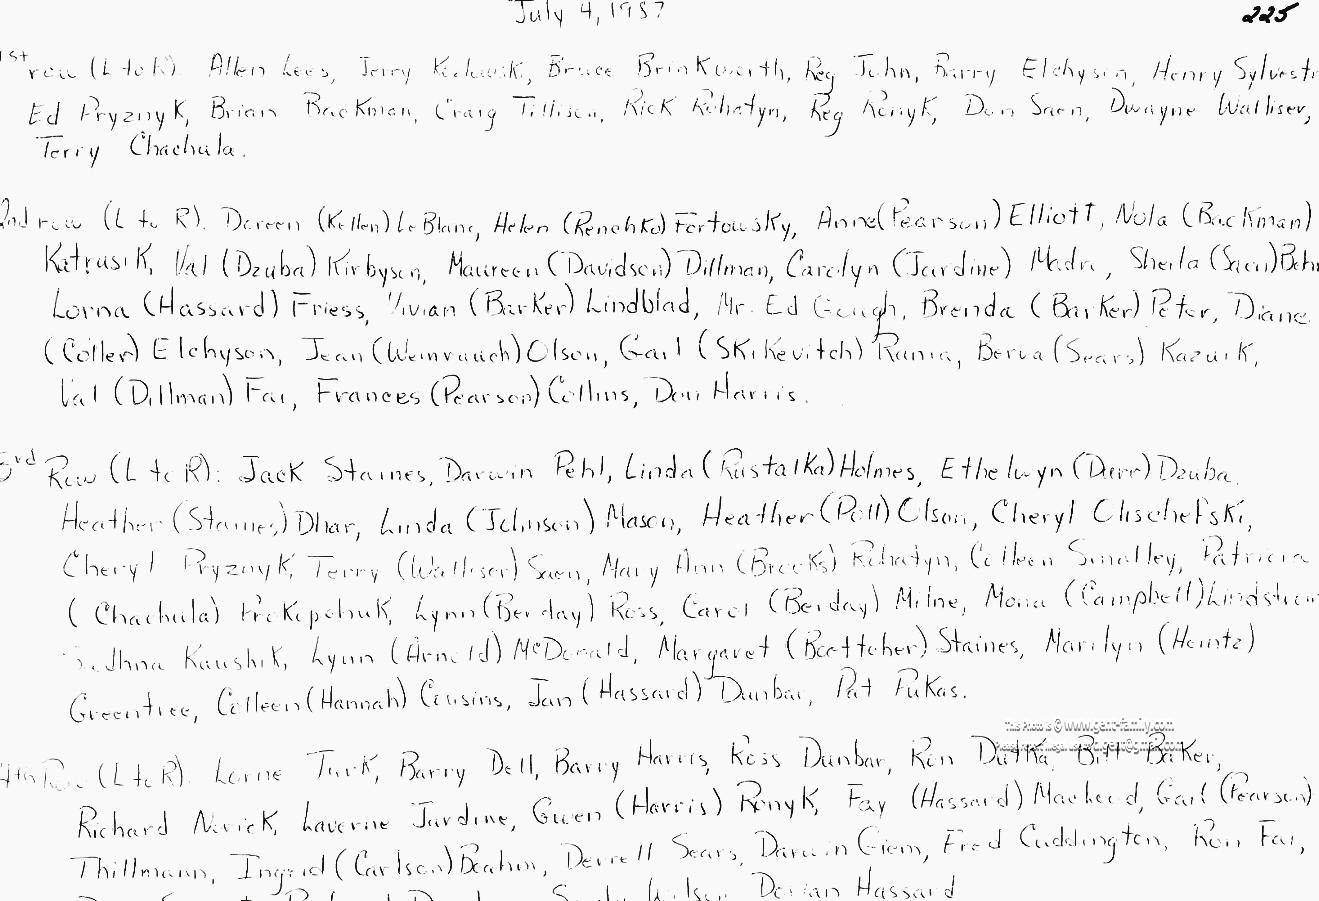 July 4, 1987
225
1st row (L to R) Allen Lees, Jerry Bruce Brinkworth, Reg John, Barry Elchyson, Henry Sylvestr
Ed Pryznyk, Brian Backman, Craig Tillison, Rick Rohatyn, Reg Ronyk, Don Saen, Dwayne Walliser,
Terry Chachula.
2nd row (L to R). Doreen (Kellen) LeBlanc, Helen (Renchko) Fortowsky, Anne (Pearson) Elliott, Nola (Backman)
Katrusik, Val (Dzuba) Kirbyson, Maureen (Davidson) Dillman, Carolyn (Jardine) Madr, Sheila (Saen)
Lorna (Hassard) Friess, Vivian (Barker) Lindblad, Mr. Ed Gough, Brenda (Barker) Peter, Diane
(Coller) Elchyson, Jean (Weinrauch) Olson, Gail (Skikevitch) Rania, Berva (Sears) Kazuik,
Val (Dillman) Fai, Frances (Pearson) Collins, Don Harris.
3rd Row (L to R): Jack Staines, Darwin Pehl, Linda (Rustalka) Holmes, Ethelwyn (Durr) Dzuba,
Heather (Staines) Dhar, Linda (Johnson) Mason, Heather (Poll) Olson, Cheryl Olischefski,
Cheryl Pryznyk, Terry (Walliser) Saen, Mary Ann (Brooks) Rohatyn, Colleen Smalley, Patricia
(Chachula) Prokopchuk, Lynn (Berday) Ross, Carol (Berday) Milne, Mona (Campbell) Lindstrom
Kaushik, Lynn (Arnold) McDonald, Margaret (Boettcher) Staines, Marilyn (Heintz)
Greentree, Colleen (Hannah) Cousins, Jan (Hassard) Dunbar, Pat Fukas.
This Photo is © www.gent-family.com
4th Row (L to R). Lorne Turk, Barry Dell, Barry Harris, Ross Dunbar, Ron Dutka, Bill Baker,
Richard Novick, Laverne Jardine, Gwen (Harris) Ronyk, Fay (Hassard) Macleod, Gail (Pearson)
Thillmann, Ingrid (Carlson) Beahm, Derrell Sears, Darwin Giem, Fred Cuddington, Ron Fai,
Dorian Hassard